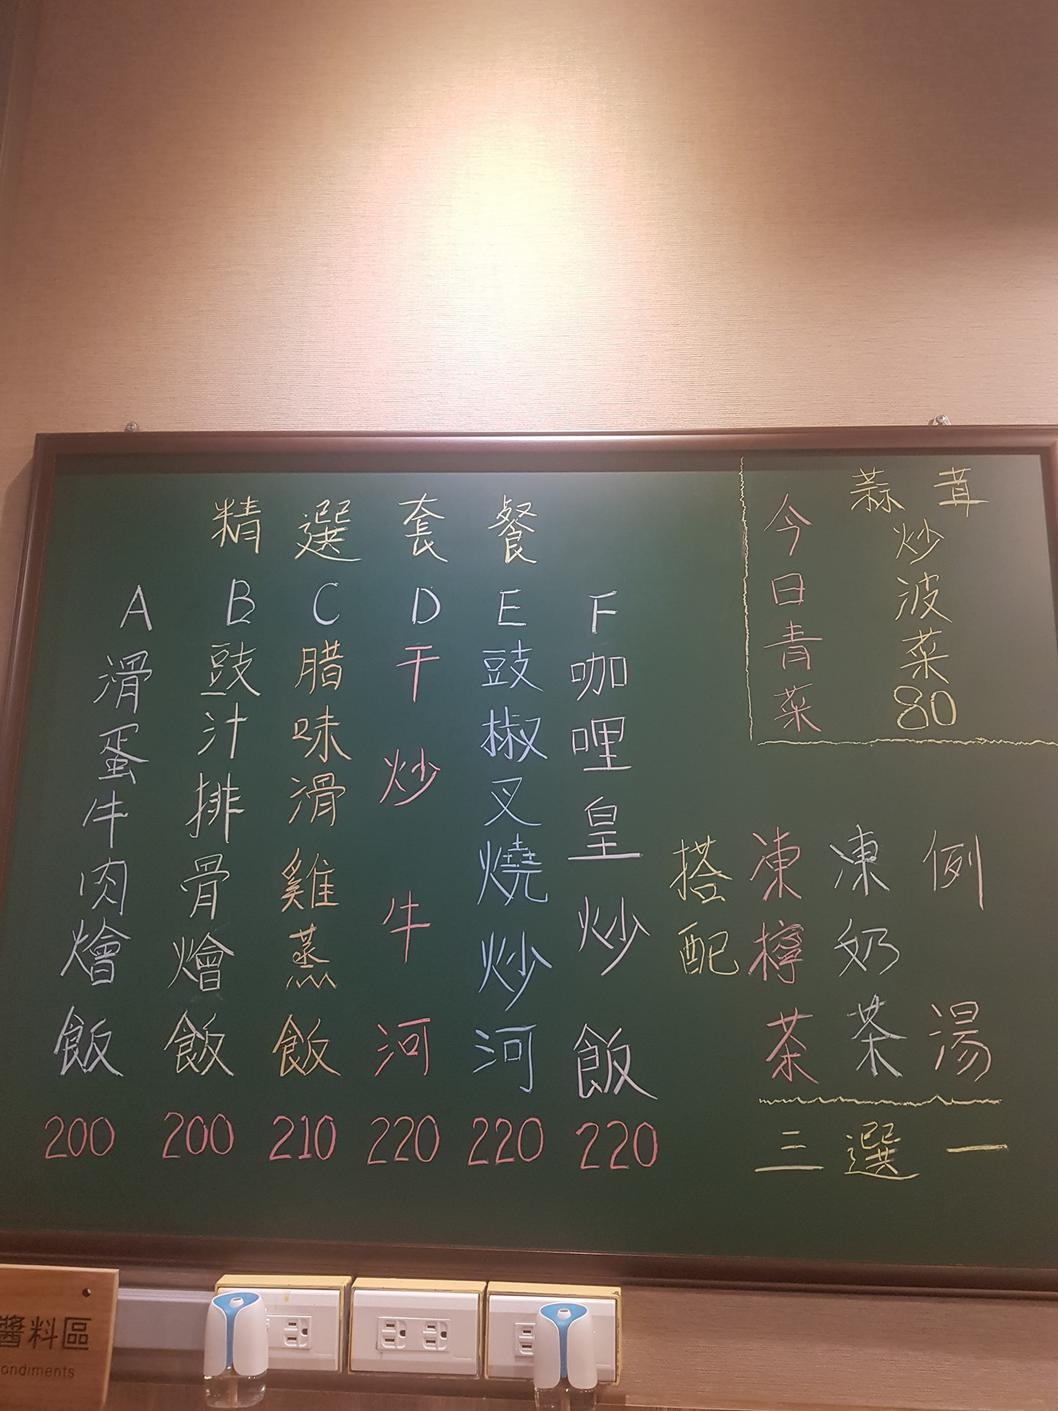 精選套餐
A 滑蛋牛肉燴飯 200
B 豉汁排骨燴飯 200
C 腊味滑雞蒸飯 210
D 干炒牛河 220
E 豉椒叉燒炒河 220
F 咖哩皇炒飯 220
今日青菜
蒜茸
炒波菜
80
搭配
凍檸茶
凍奶茶
例湯
三選一
醬料區
ondiments